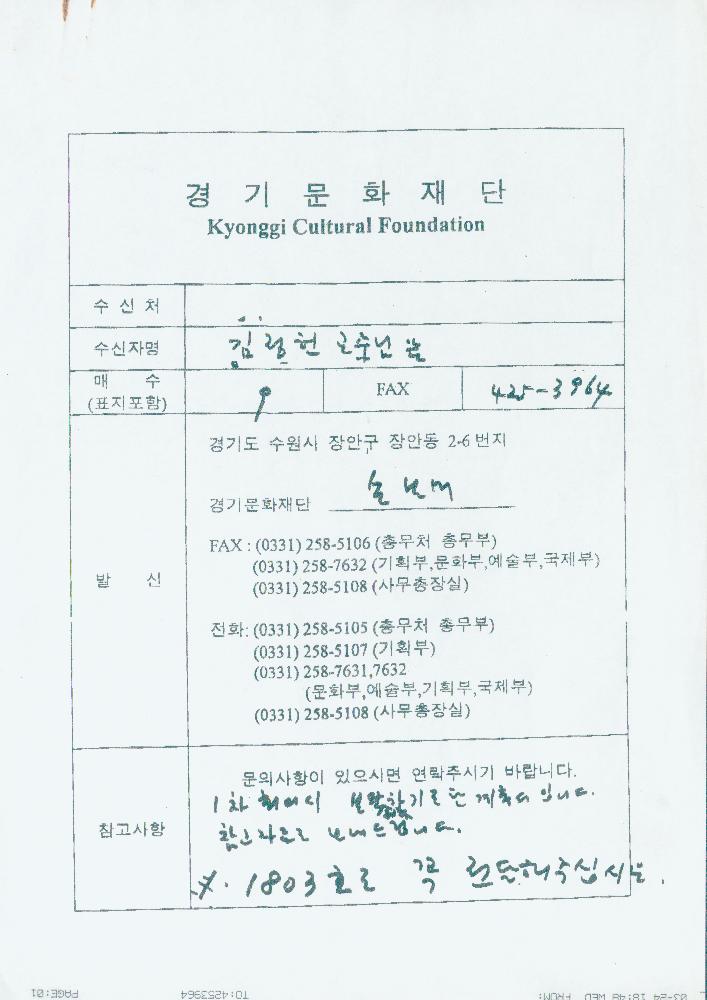 경 기 문 화 재 단
Kyonggi Cultural Foundation
수 신 처
수신자명 김 헌
매 수
(표지포함) 9 FAX 425-3964
경기도 수원시 장안구 장안동 2-6 번지
경기문화재단
발 신
FAX : (0331) 258-5106 (총무처 총무부)
(0331) 258-7632 (기획부,문화부,예술부,국제부)
(0331) 258-5108 (사무총장실)
전화: (0331) 258-5105 (총무처 총무부)
(0331) 258-5107 (기획부)
(0331) 258-7631,7632
(문화부,예술부,기획부,국제부)
(0331) 258-5108 (사무총장실)
문의사항이 있으시면 연락주시기 바랍니다.
1차 회의시 계획서 입니다.
참고사항
참고자료로 보내드립니다.
※. 1803호로 꼭 전달해주십시오.
03-24 18:48 WED FROM: TO:4253964 PAGE:01